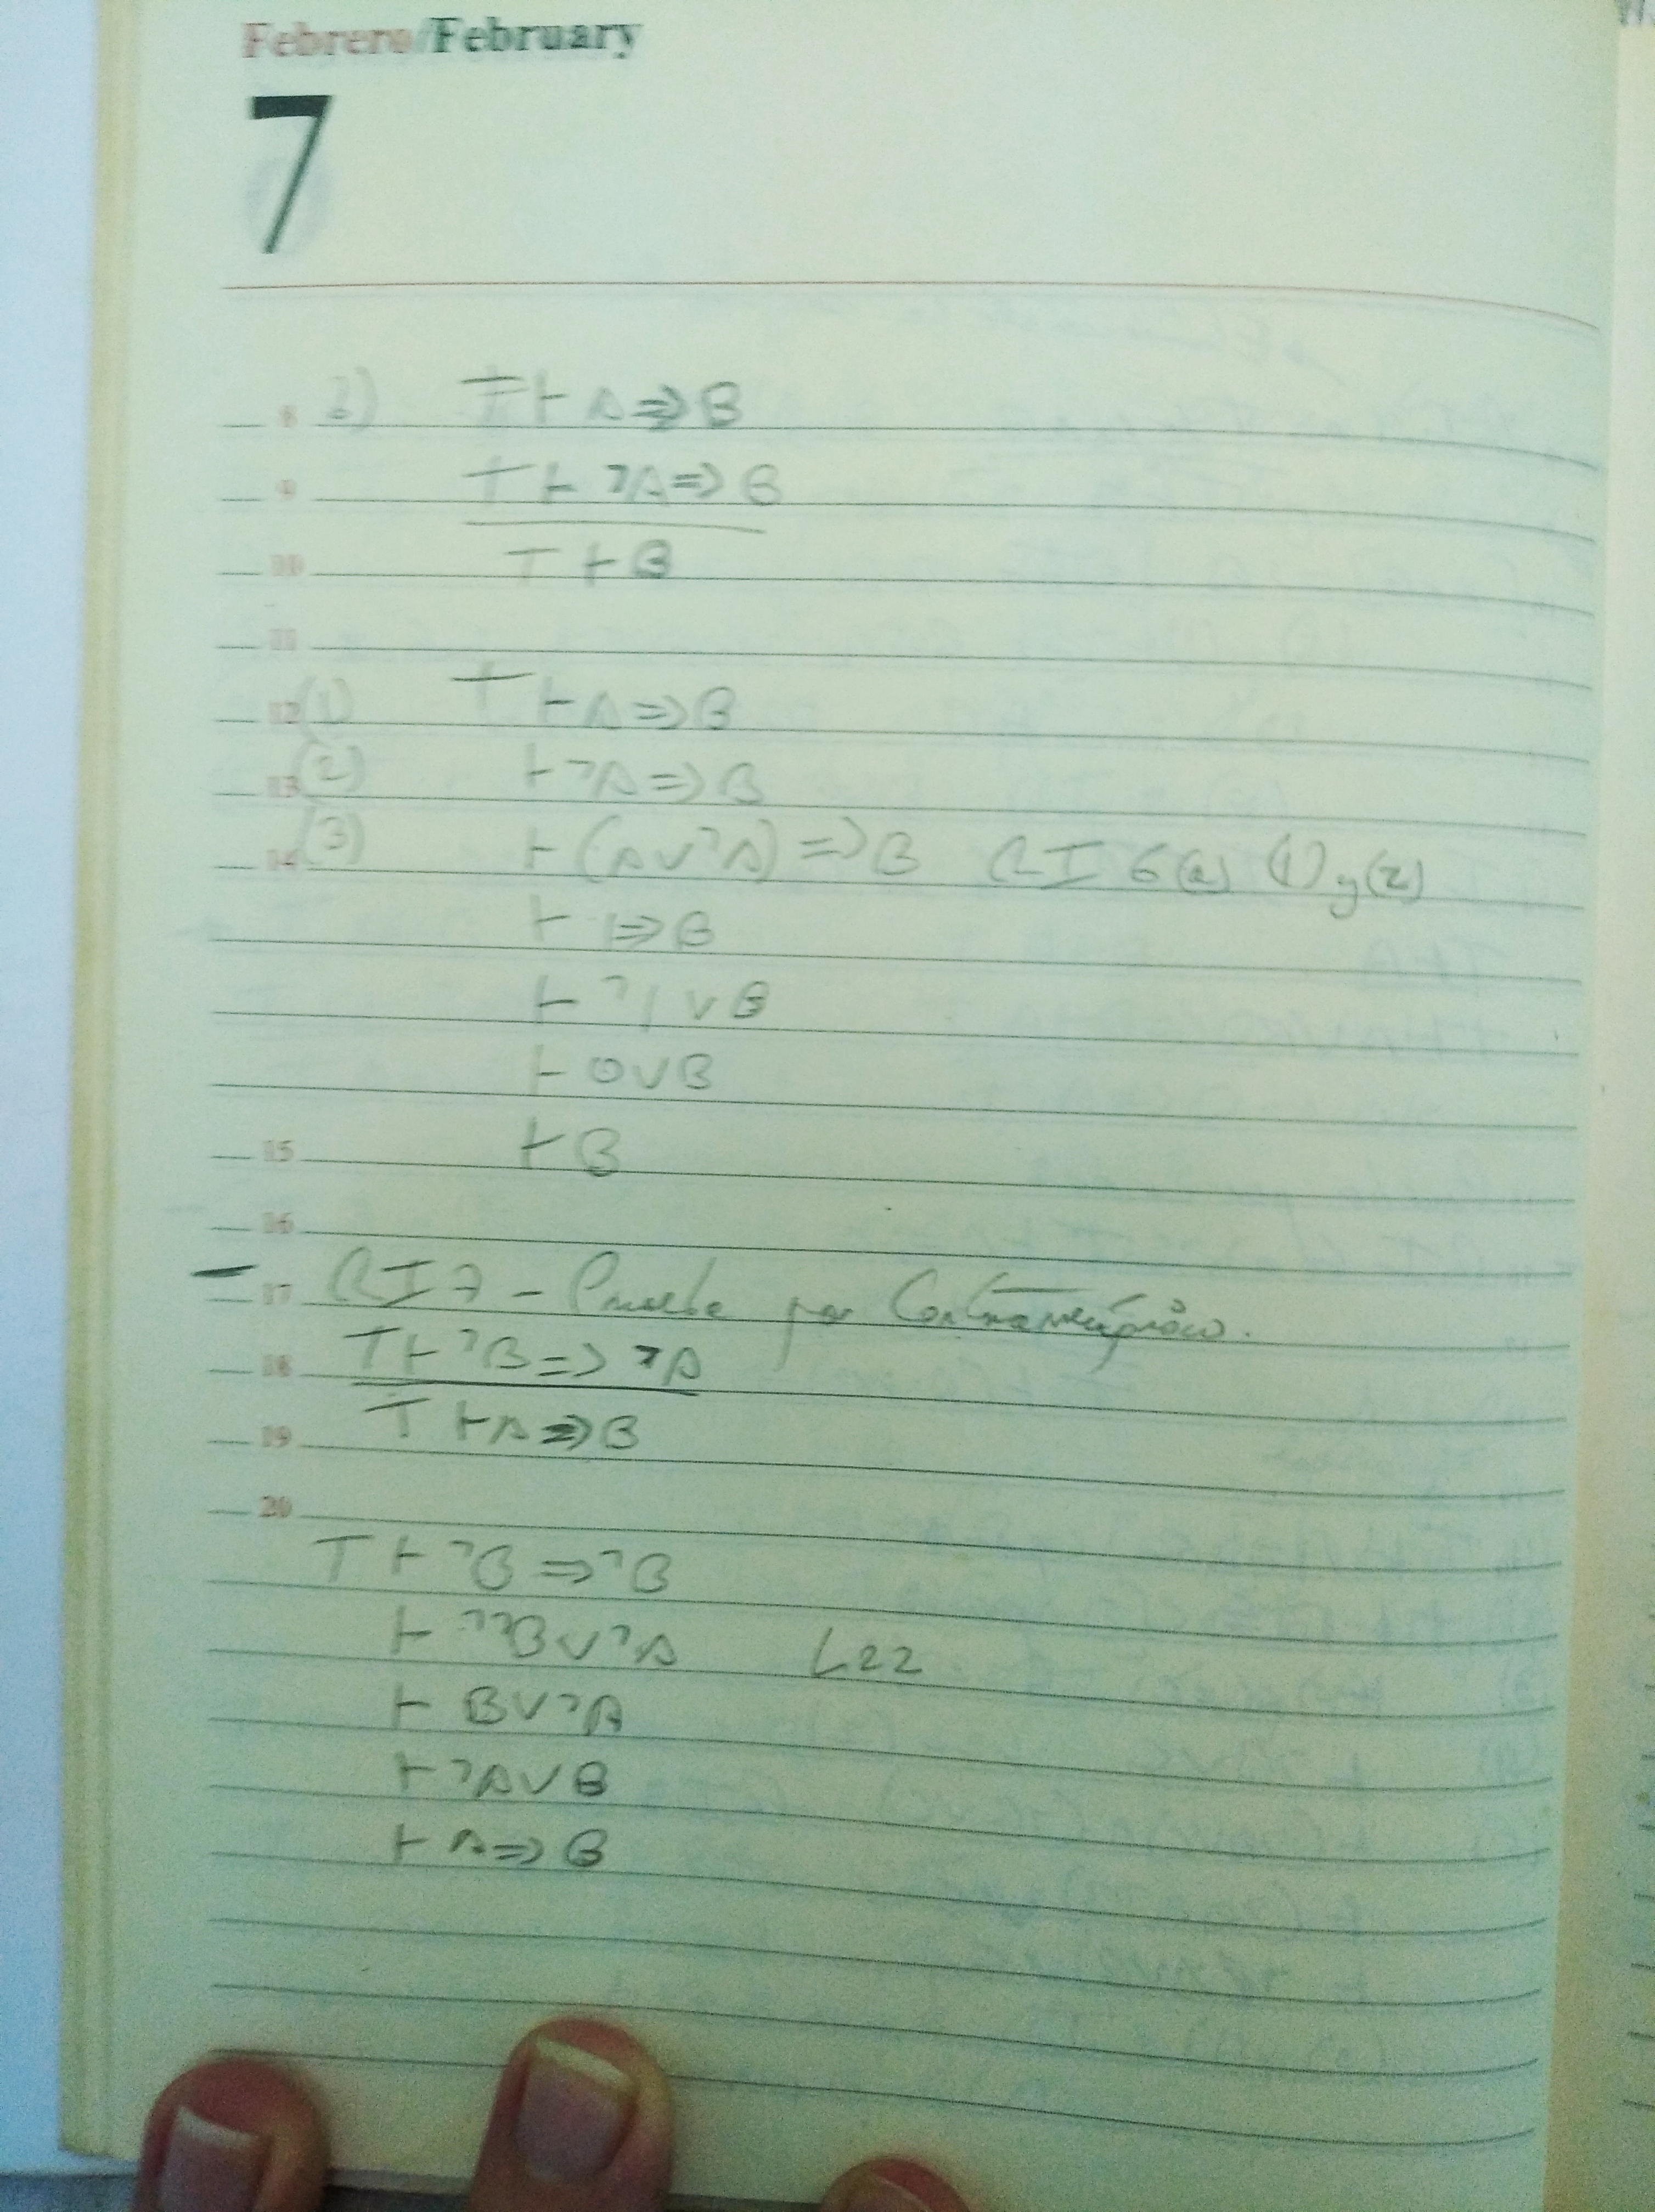 Febrero/February
7
8 2) T ⊢ A ⇒ B
9 T ⊢ ¬A ⇒ B
10 T ⊢ B
11
12 (1) T ⊢ A ⇒ B
13 (2) ⊢ ¬A ⇒ B
14 (3) ⊢ (A ∨ ¬A) ⇒ B RI 6(a) (1) y (2)
⊢ 1 ⇒ B
⊢ ¬1 ∨ B
⊢ 0 ∨ B
15 ⊢ B
16
17 – RI 7 – Prueba por
18 T ⊢ ¬B ⇒ ¬A
19 T ⊢ A ⇒ B
20
T ⊢ ¬B ⇒ ¬B
⊢ ¬¬B ∨ ¬A L22
⊢ B ∨ ¬A
⊢ ¬A ∨ B
⊢ A ⇒ B